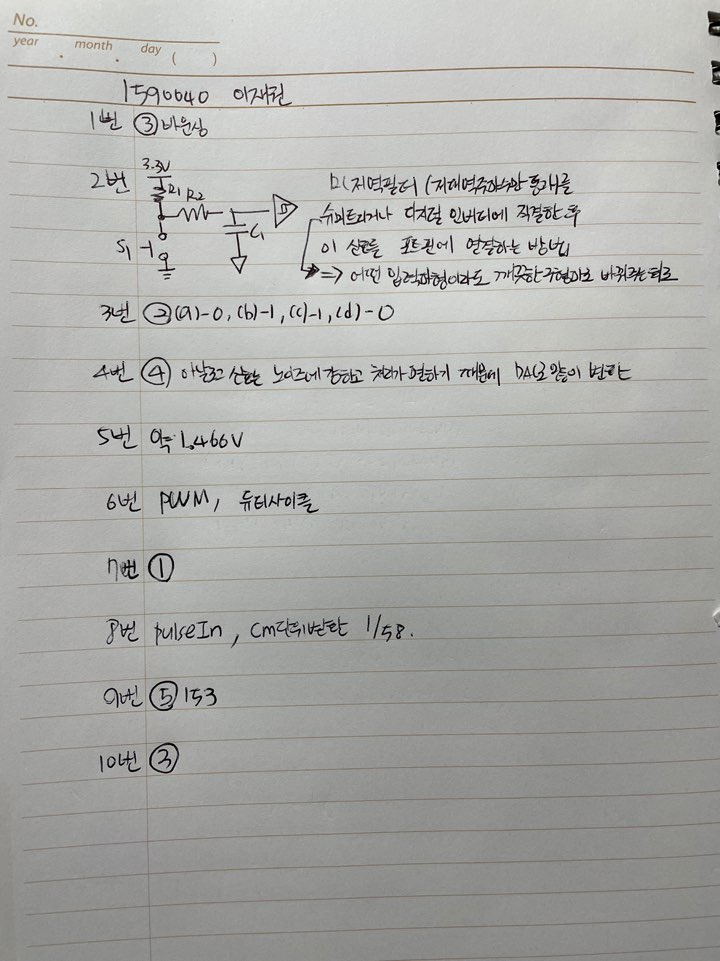 No.
year . month . day ( )
1590040 이재원
1번 ③ 바운싱
2번 3.3V R1 R2 C1 S1
저역필터 (저대역주파수만 통과)를
슈미트트리거나 디지털 인버터에 직결한 후
이 신호를 포트핀에 연결하는 방법
=> 어떤 입력파형이라도 깨끗한 구형파로 바꿔주는 회로
3번 ② (a)-0, (b)-1, (c)-1, (d)-0
4번 ④ 아날로그 신호는 노이즈에 강하고 처리가 편하기 때문에 DAC로 많이 변환
5번 약 1.466V
6번 PWM, 듀티사이클
7번 ①
8번 pulseIn, cm단위변환 1/58.
9번 ⑤ 153
10번 ③